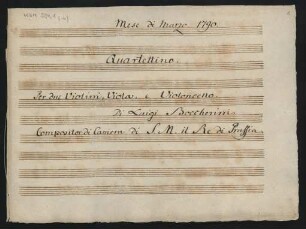 Mese di Marzo 1790
Quartettino.
Per due Violini, Viola, e Violoncello.
Di Luigi Boccherini.
Compositor di Camera di S. M. il Re di Prussia